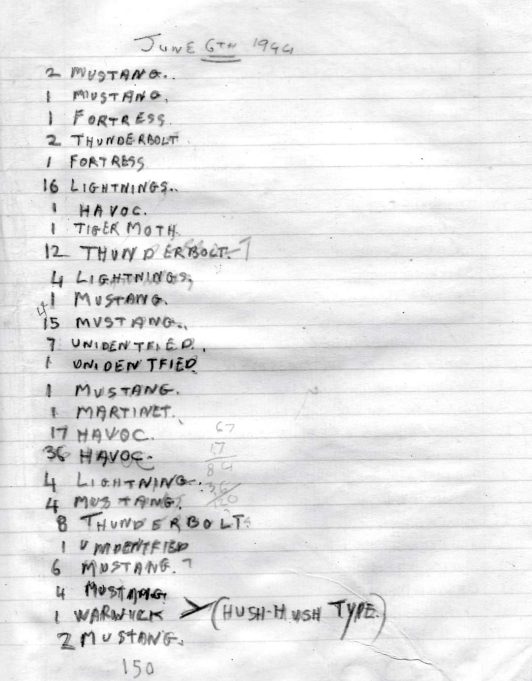 JUNE 6TH 1944
2 MUSTANG..
1 MIUSTANG.
1 FORTRESS.
2 THUNDERBOLT
1 FORTRESS
16 LIGHTNINGS..
1 HAVOC.
1 TIGER MOTH.
12 THUNDERBOLT.
4 LIGHTNINGS,
1 MUSTANG.
4
15 MUSTANG..
7 UNIDENTFIED.
1 UNIDENTFIED
1 MUSTANG.
1 MARTINET.
17 HAVOC. 67
36 HAVOC. 17
84
4 LIGHTNING. 36
4 MUSTANG. 120
8 THUNDERBOLT.
1 UNIDENTFIED
6 MUSTANG.
4 MUSTANG
1 WARWICK > (HUSH-HUSH TYPE.)
2 MUSTANG.
150